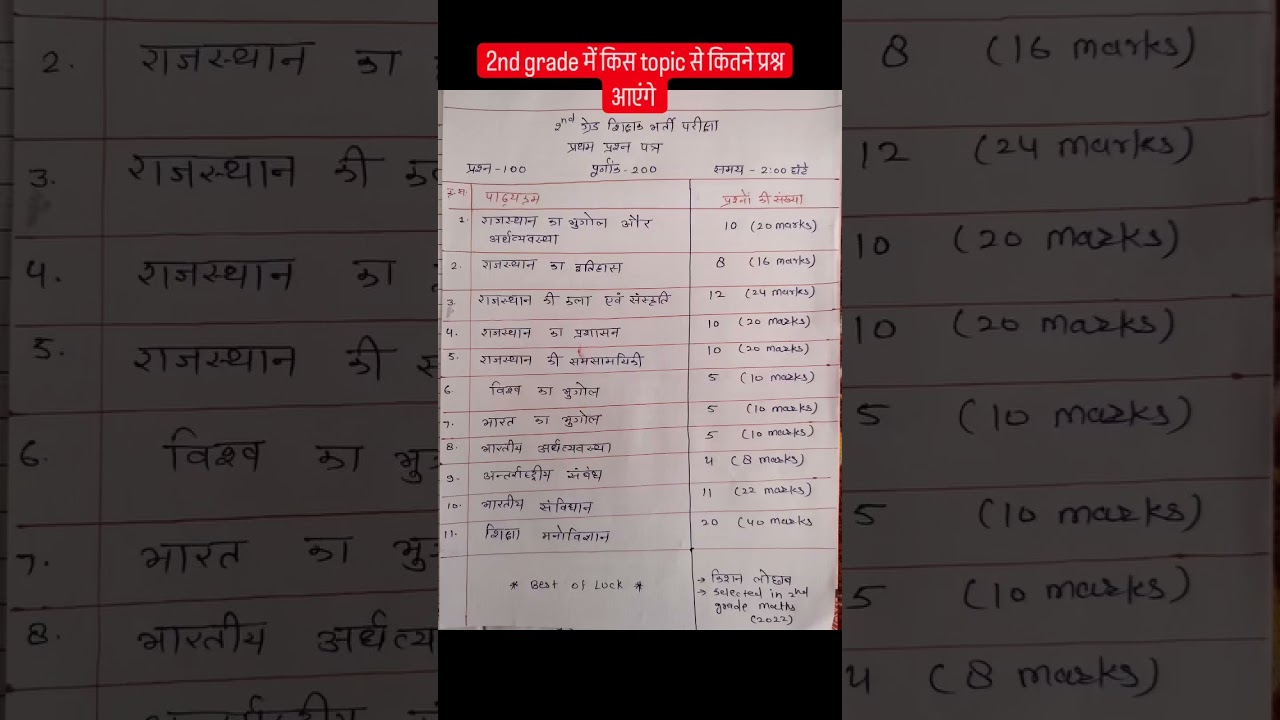 2nd grade में किस topic से कितने प्रश्न
आएंगे
2nd ग्रेड शिक्षक भर्ती परीक्षा
प्रथम प्रश्न पत्र
प्रश्न -100 पूर्णांक - 200 समय - 2:00 घंटे
क्र.स. पाठ्यक्रम प्रश्नों की संख्या
1. राजस्थान का भुगोल और 10 (20 marks)
अर्थव्यवस्था
2. राजस्थान का इतिहास 8 (16 marks)
3. राजस्थान की कला एवं संस्कृति 12 (24 marks)
4. राजस्थान का प्रशासन 10 (20 marks)
5. राजस्थान की समसामयिकी 10 (20 marks)
6. विश्व का भुगोल 5 (10 marks)
7. भारत का भुगोल 5 (10 marks)
8. भारतीय अर्थव्यवस्था 5 (10 marks)
9. अन्तर्राष्ट्रीय संबंध 4 (8 marks)
10. भारतीय संविधान 11 (22 marks)
11. शिक्षा मनोविज्ञान 20 (40 marks
* Best of Luck *
→ किशन
→ selected in 2nd
grade maths
(2022)
2. राजस्थान का 8 (16 marks)
3. राजस्थान की 12 (24 marks)
4. राजस्थान का 10 (20 marks)
5. राजस्थान की 10 (20 marks)
6. विश्व का 5 (10 marks)
7. भारत का 5 (10 marks)
8. भारतीय 5 (10 marks)
4 (8 marks)